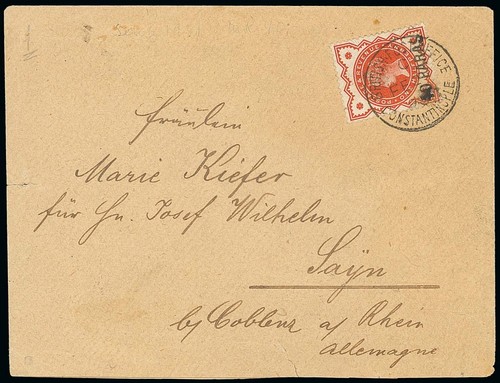 OFFICE
CONSTANTINOPLE
Fräulein
Marie Kiefer
für Hn. Josef Wilhelm
Saÿn
b/ Coblenz a/ Rhein
Allemagne